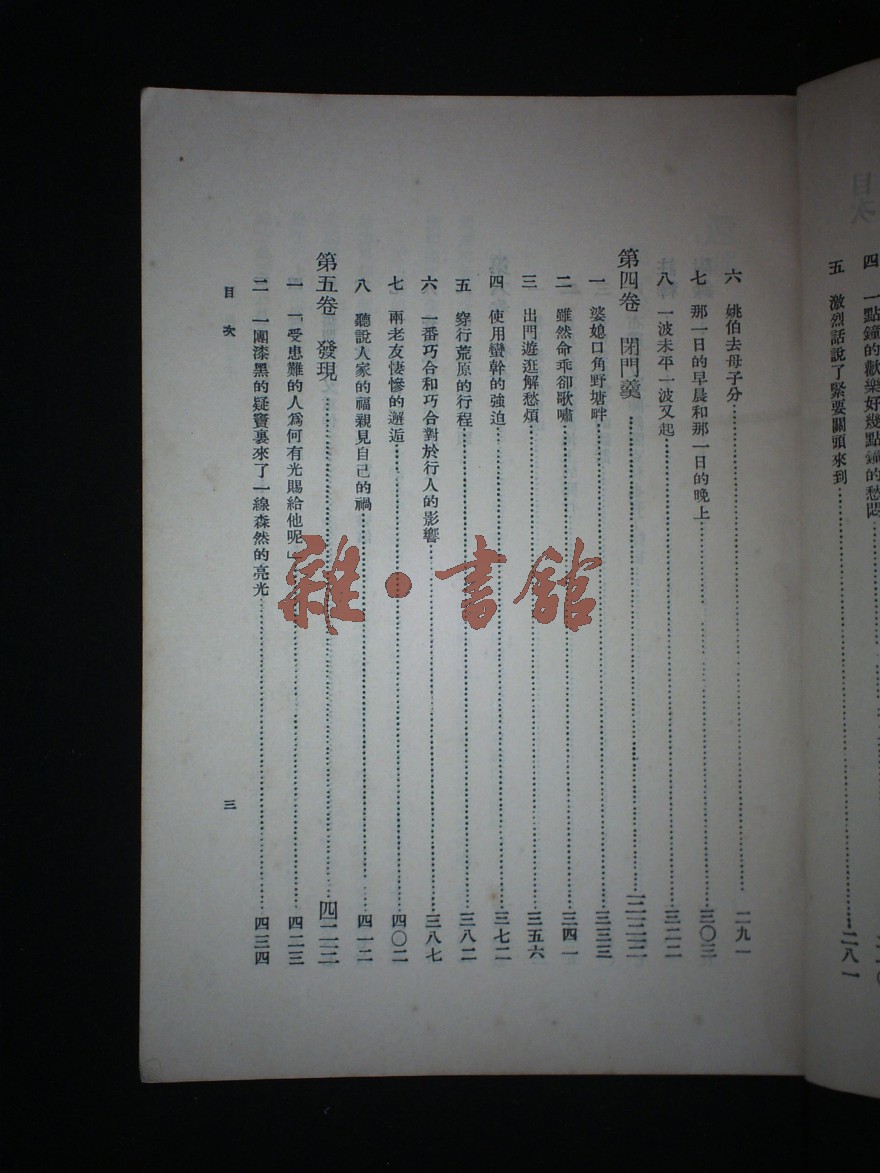 目次
四 一點鐘的歡樂好幾點鐘的愁悶
五 激烈話說了緊要關頭來到……二八一
六 姚伯去母子分……二九一
七 那一日的早晨和那一日的晚上……三〇三
八 一波未平一波又起……三二二
第四卷 閉門羹
一 婆媳口角野塘畔……三三三
二 雖然命乖卻歌嘯……三四一
三 出門遊逛解愁煩……三五六
四 使用蠻幹的強迫……三七二
五 穿行荒原的行程……三八二
六 一番巧合和巧合對於行人的影響……三八七
七 兩老友悽慘的邂逅……四〇二
八 聽說人家的福親見自己的禍……四一二
第五卷 發現
一 「受患難的人爲何有光賜給他呢」……四二三
二 一團漆黑的疑竇裏來了一線森然的亮光……四三四
目次
三
雜·書館